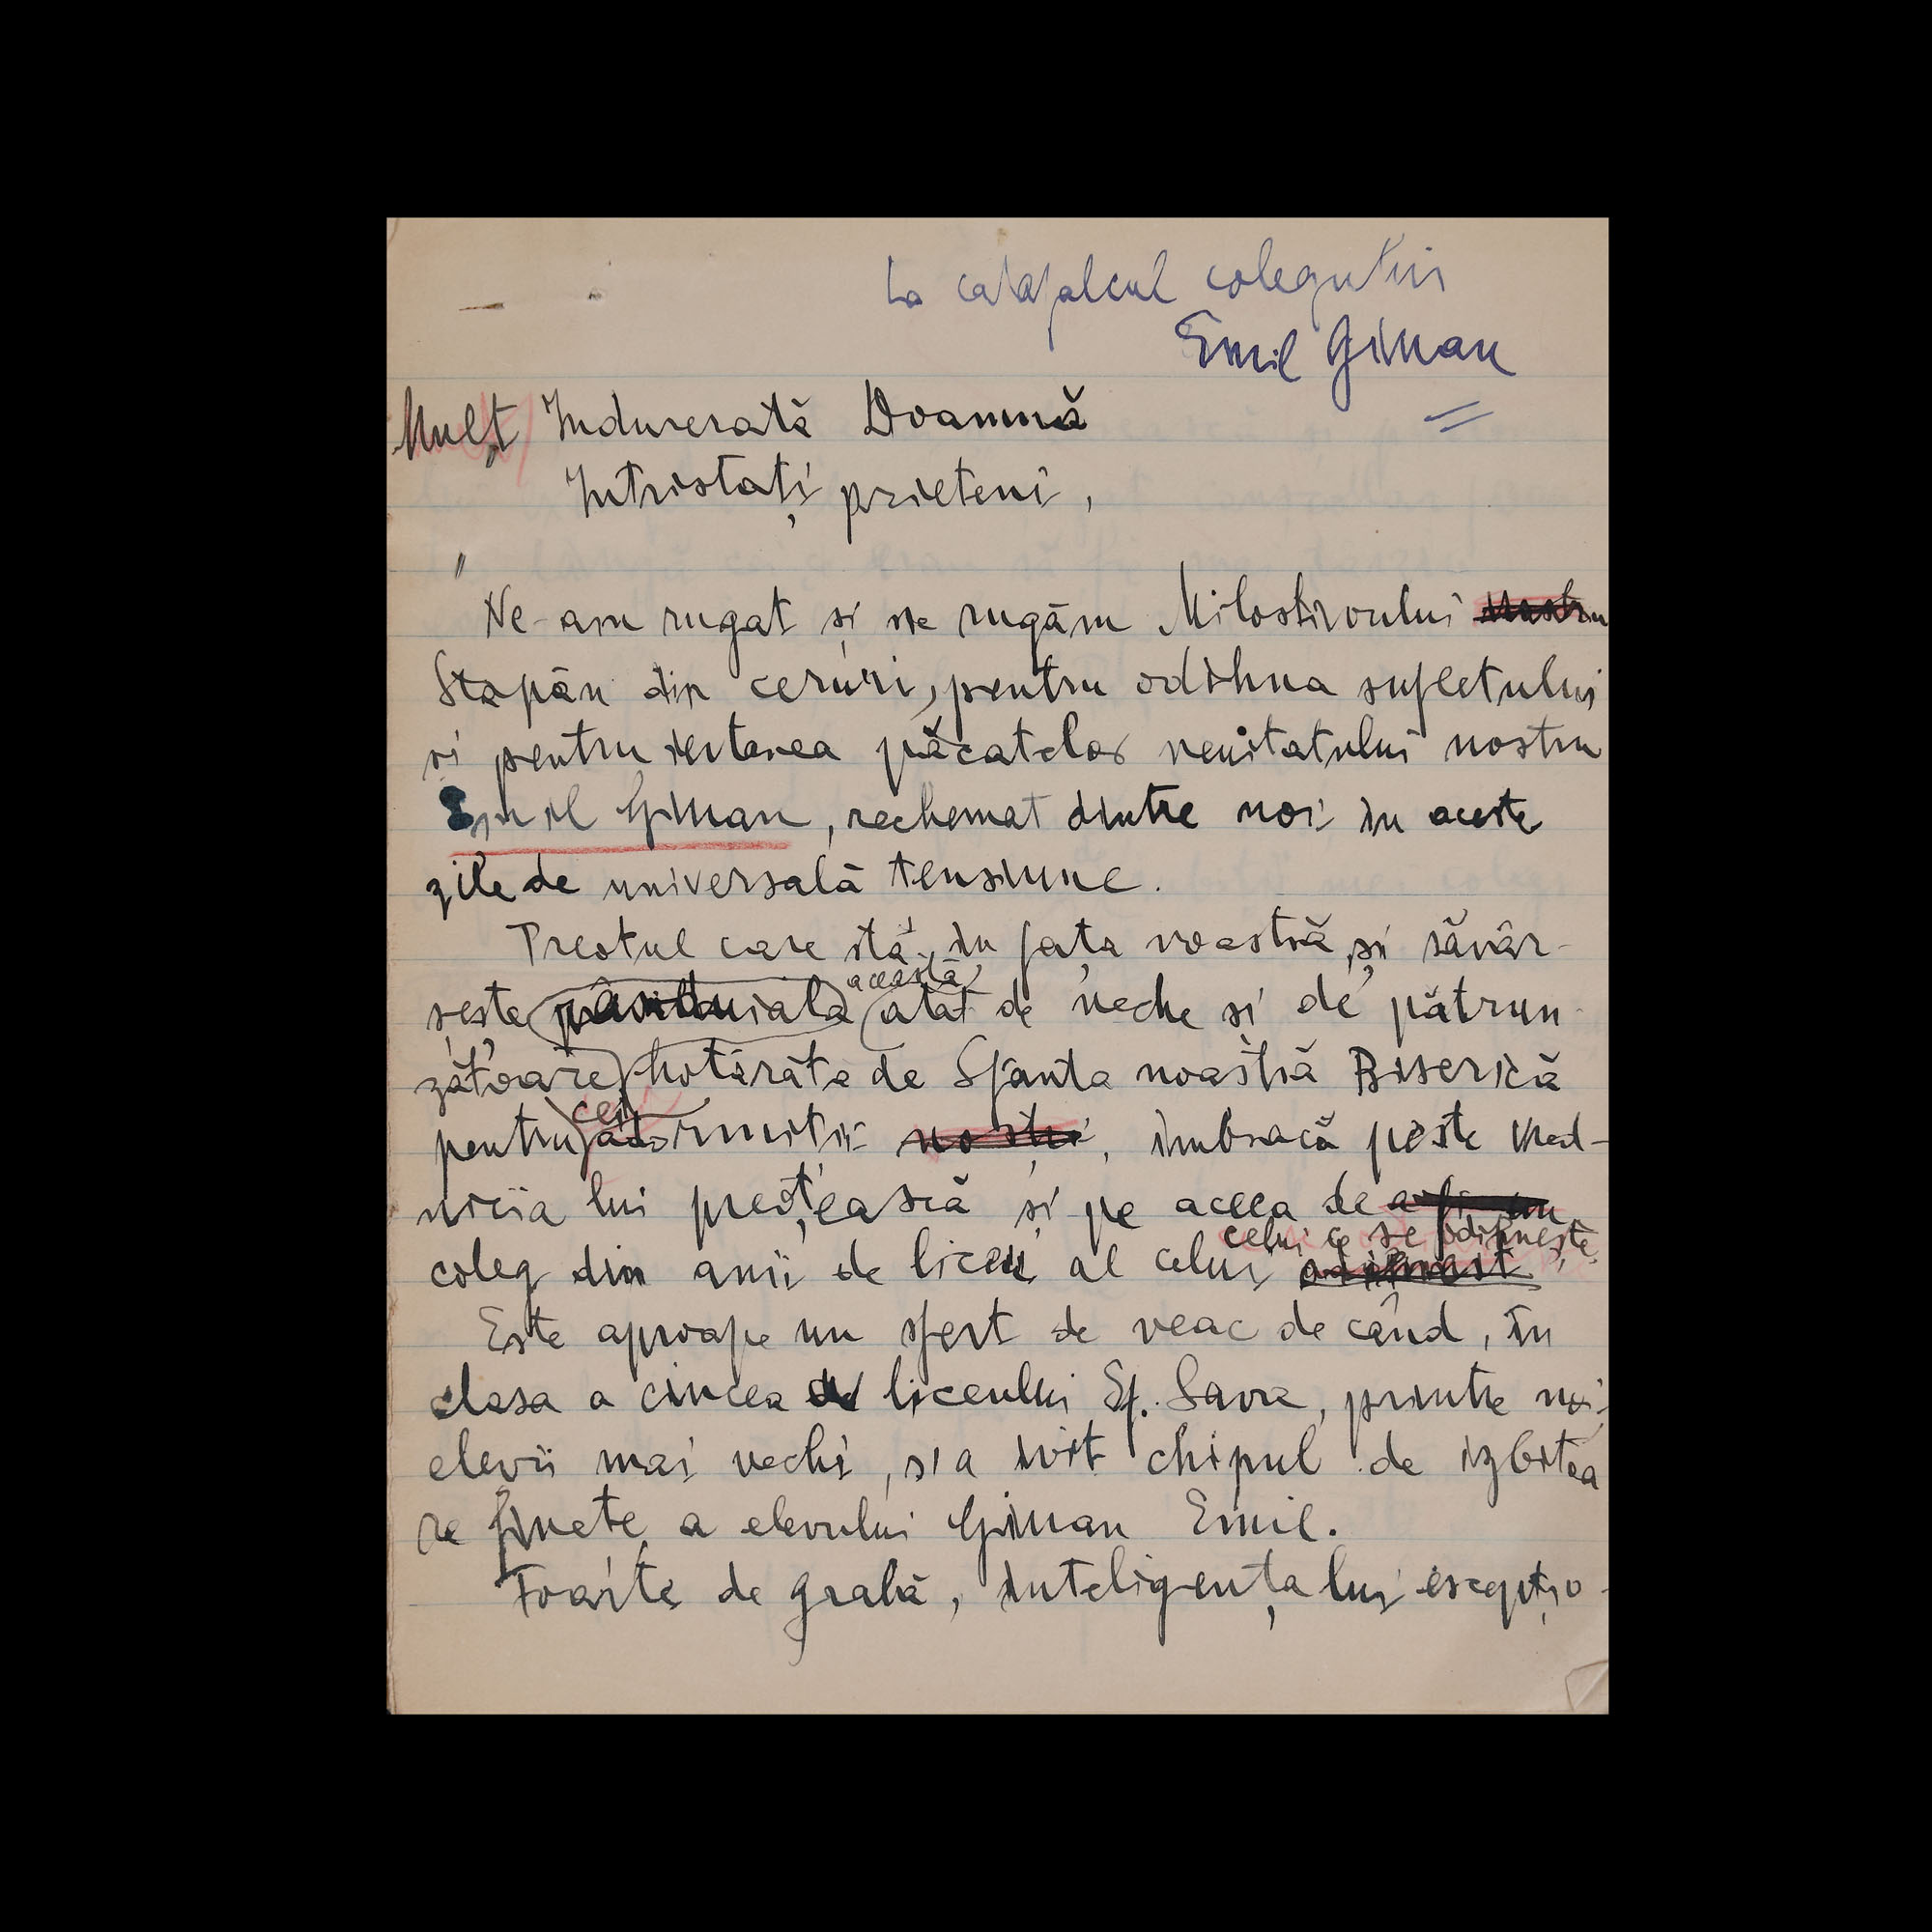 La catafalcul colegului
Emil Giman
Mult Indurerată Doamnă
Intristați prieteni,
"
Ne-am rugat și ne rugăm Milostivului nostru
Stăpân din ceruri, pentru odihna sufletului
si pentru iertarea păcatelor neuitatului nostru
Emil Giman, rechemat dintre noi in aceste
zile de universală tensiune.
Preotul care stă in fața voastră și săvâr-
șește rânduiala această atât de veche și de pătrun-
zătoare hotărâta de Sfanta noastră Biserică
pentru cei adormiti nostri, imbracă peste vred-
nicia lui preoțească și pe aceea de a fi un
coleg din anii de liceu al celui celui ce se odihnește
Este aproape un sfert de veac de când, în
clasa a cincea a liceului Sf. Sava, printre noi,
elevii mai vechi, s'a ivit chipul de izbitoa
re finețe a elevului Giman Emil.
Foarte de grabă, inteligența lui escepțio-